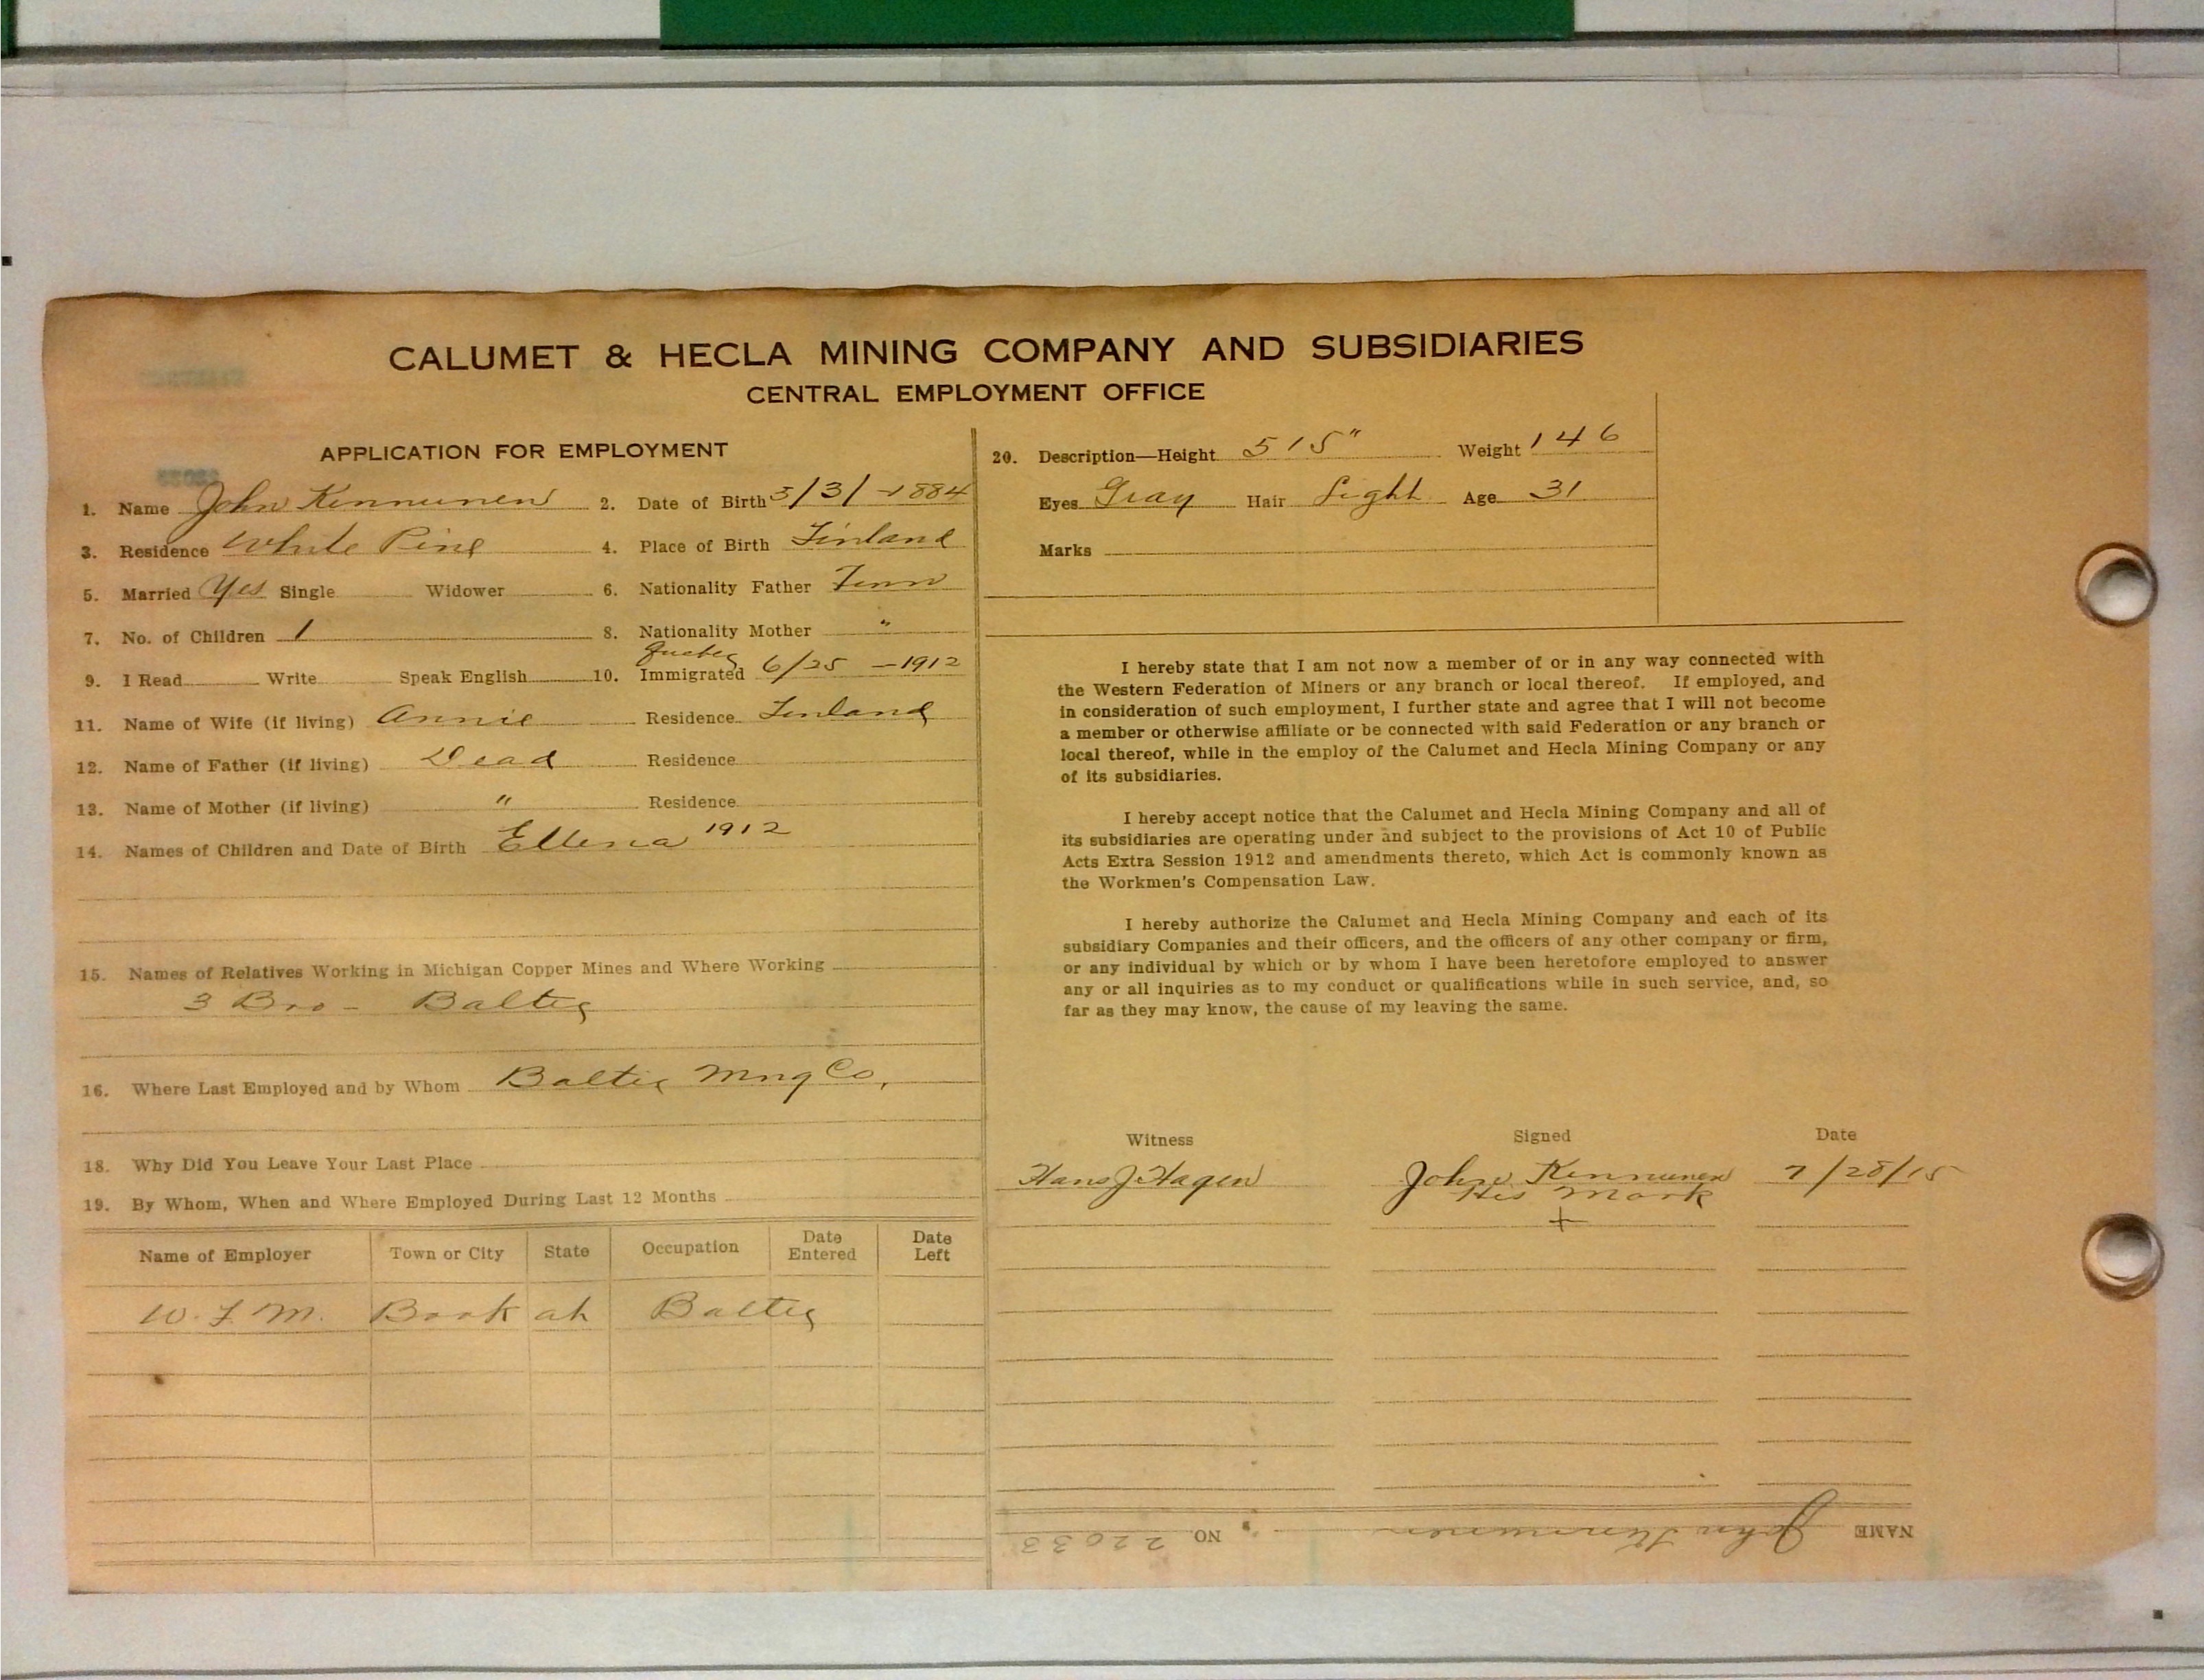 CALUMET & HECLA MINING COMPANY AND SUBSIDIARIES
CENTRAL EMPLOYMENT OFFICE
APPLICATION FOR EMPLOYMENT
1. Name John Kinnunen 2. Date of Birth 3/3/-1884
3. Residence White Pine 4. Place of Birth Finland
5. Married Yes Single Widower 6. Nationality Father Finn
7. No. of Children 1 8. Nationality Mother "
Quebec
9. I Read Write Speak English 10. Immigrated 6/25 -1912
11. Name of Wife (if living) Annie Residence Finland
12. Name of Father (if living) Dead Residence
13. Name of Mother (if living) " Residence
14. Names of Children and Date of Birth Ellena 1912
15. Names of Relatives Working in Michigan Copper Mines and Where Working
3 Bro - Baltic
16. Where Last Employed and by Whom Baltic Mng Co.
18. Why Did You Leave Your Last Place
19. By Whom, When and Where Employed During Last 12 Months
Name of Employer Town or City State Occupation Date Entered Date Left
W. F. M. Book at Baltic
20. Description—Height 5' 5" Weight 146
Eyes Gray Hair Light Age 31
Marks
I hereby state that I am not now a member of or in any way connected with
the Western Federation of Miners or any branch or local thereof. If employed, and
in consideration of such employment, I further state and agree that I will not become
a member or otherwise affiliate or be connected with said Federation or any branch or
local thereof, while in the employ of the Calumet and Hecla Mining Company or any
of its subsidiaries.
I hereby accept notice that the Calumet and Hecla Mining Company and all of
its subsidiaries are operating under and subject to the provisions of Act 10 of Public
Acts Extra Session 1912 and amendments thereto, which Act is commonly known as
the Workmen's Compensation Law.
I hereby authorize the Calumet and Hecla Mining Company and each of its
subsidiary Companies and their officers, and the officers of any other company or firm,
or any individual by which or by whom I have been heretofore employed to answer
any or all inquiries as to my conduct or qualifications while in such service, and, so
far as they may know, the cause of my leaving the same.
Witness Signed Date
Hans J Hagen John Kinnunen 7/28/15
His Mark
+
NAME John Kinnunen NO. 22033